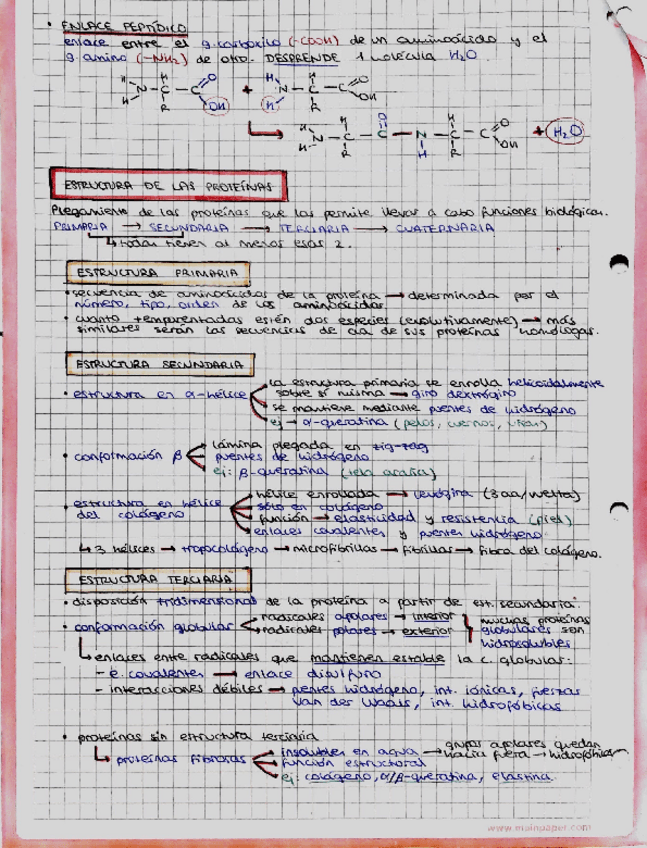 • ENLACE PEPTÍDICO
enlace entre el g. carboxilo (-COOH) de un aminoácido y el
g. amino (-NH₂) de otro. DESPRENDE 1 molécula H₂O
H H O H H O
N - C - C + N - C - C
H R OH H R OH
H H O H O
N - C - C - N - C - C + H₂O
H R H R OH
ESTRUCTURA DE LAS PROTEÍNAS
Plegamiento de las proteínas que las permite llevar a cabo funciones biológicas.
PRIMARIA → SECUNDARIA → TERCIARIA → CUATERNARIA
↳ todas tienen al menos esas 2.
ESTRUCTURA PRIMARIA
• secuencia de aminoácidos de la proteína → determinada por el
número, tipo, orden de los aminoácidos.
• cuanto + emparentadas estén dos especies (evolutivamente) → más
similares serán las secuencias de aa de sus proteínas homólogas.
ESTRUCTURA SECUNDARIA
la estructura primaria se enrolla helicoidalmente
• estructura en α-hélice sobre sí misma → giro dextrógiro
se mantiene mediante puentes de hidrógeno
ej → α-queratina (pelos, cuernos, uñas)
lámina plegada en zig-zag
• conformación β puentes de hidrógeno
ej: β-queratina (tela araña)
hélice enrollada → levógira (3aa/vuelta)
• estructura en hélice sólo en colágeno
del colágeno función → elasticidad y resistencia (piel)
enlaces covalentes y puentes hidrógeno
↳ 3 hélices → tropocolágeno → microfibrillas → fibrillas → fibra del colágeno.
ESTRUCTURA TERCIARIA
• disposición tridimensional de la proteína a partir de est. secundaria.
• conformación globular radicales apolares → interior muchas proteínas
radicales polares → exterior globulares son
hidrosolubles
↳ enlaces entre radicales que mantienen estable la c. globular:
- e. covalentes → enlace disulfuro
- interacciones débiles → puentes hidrógeno, int. iónicas, fuerzas
Van der Waals, int. hidrofóbicas
• proteínas sin estructura terciaria
insolubles en agua → grupos apolares quedan
↳ proteínas fibrosas función estructural hacia fuera → hidrofóbicas
ej: colágeno, α/β-queratina, elastina.
www.mainpaper.com